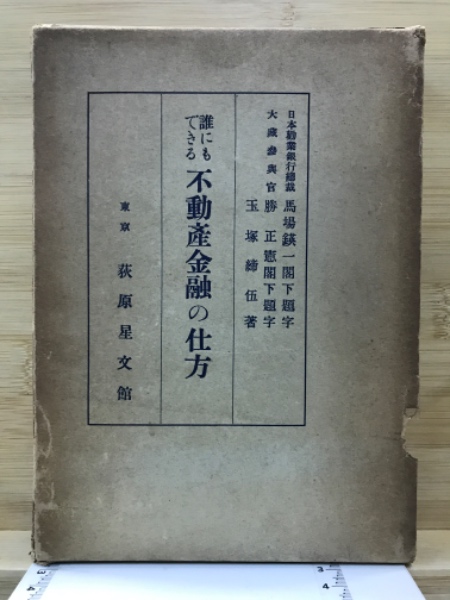 日本勧業銀行総裁 馬場鍈一閣下題字
大蔵参与官 勝正憲閣下題字
玉塚締伍著
誰にも
できる
不動産金融の仕方
東京 荻原星文館
4
3
3
4